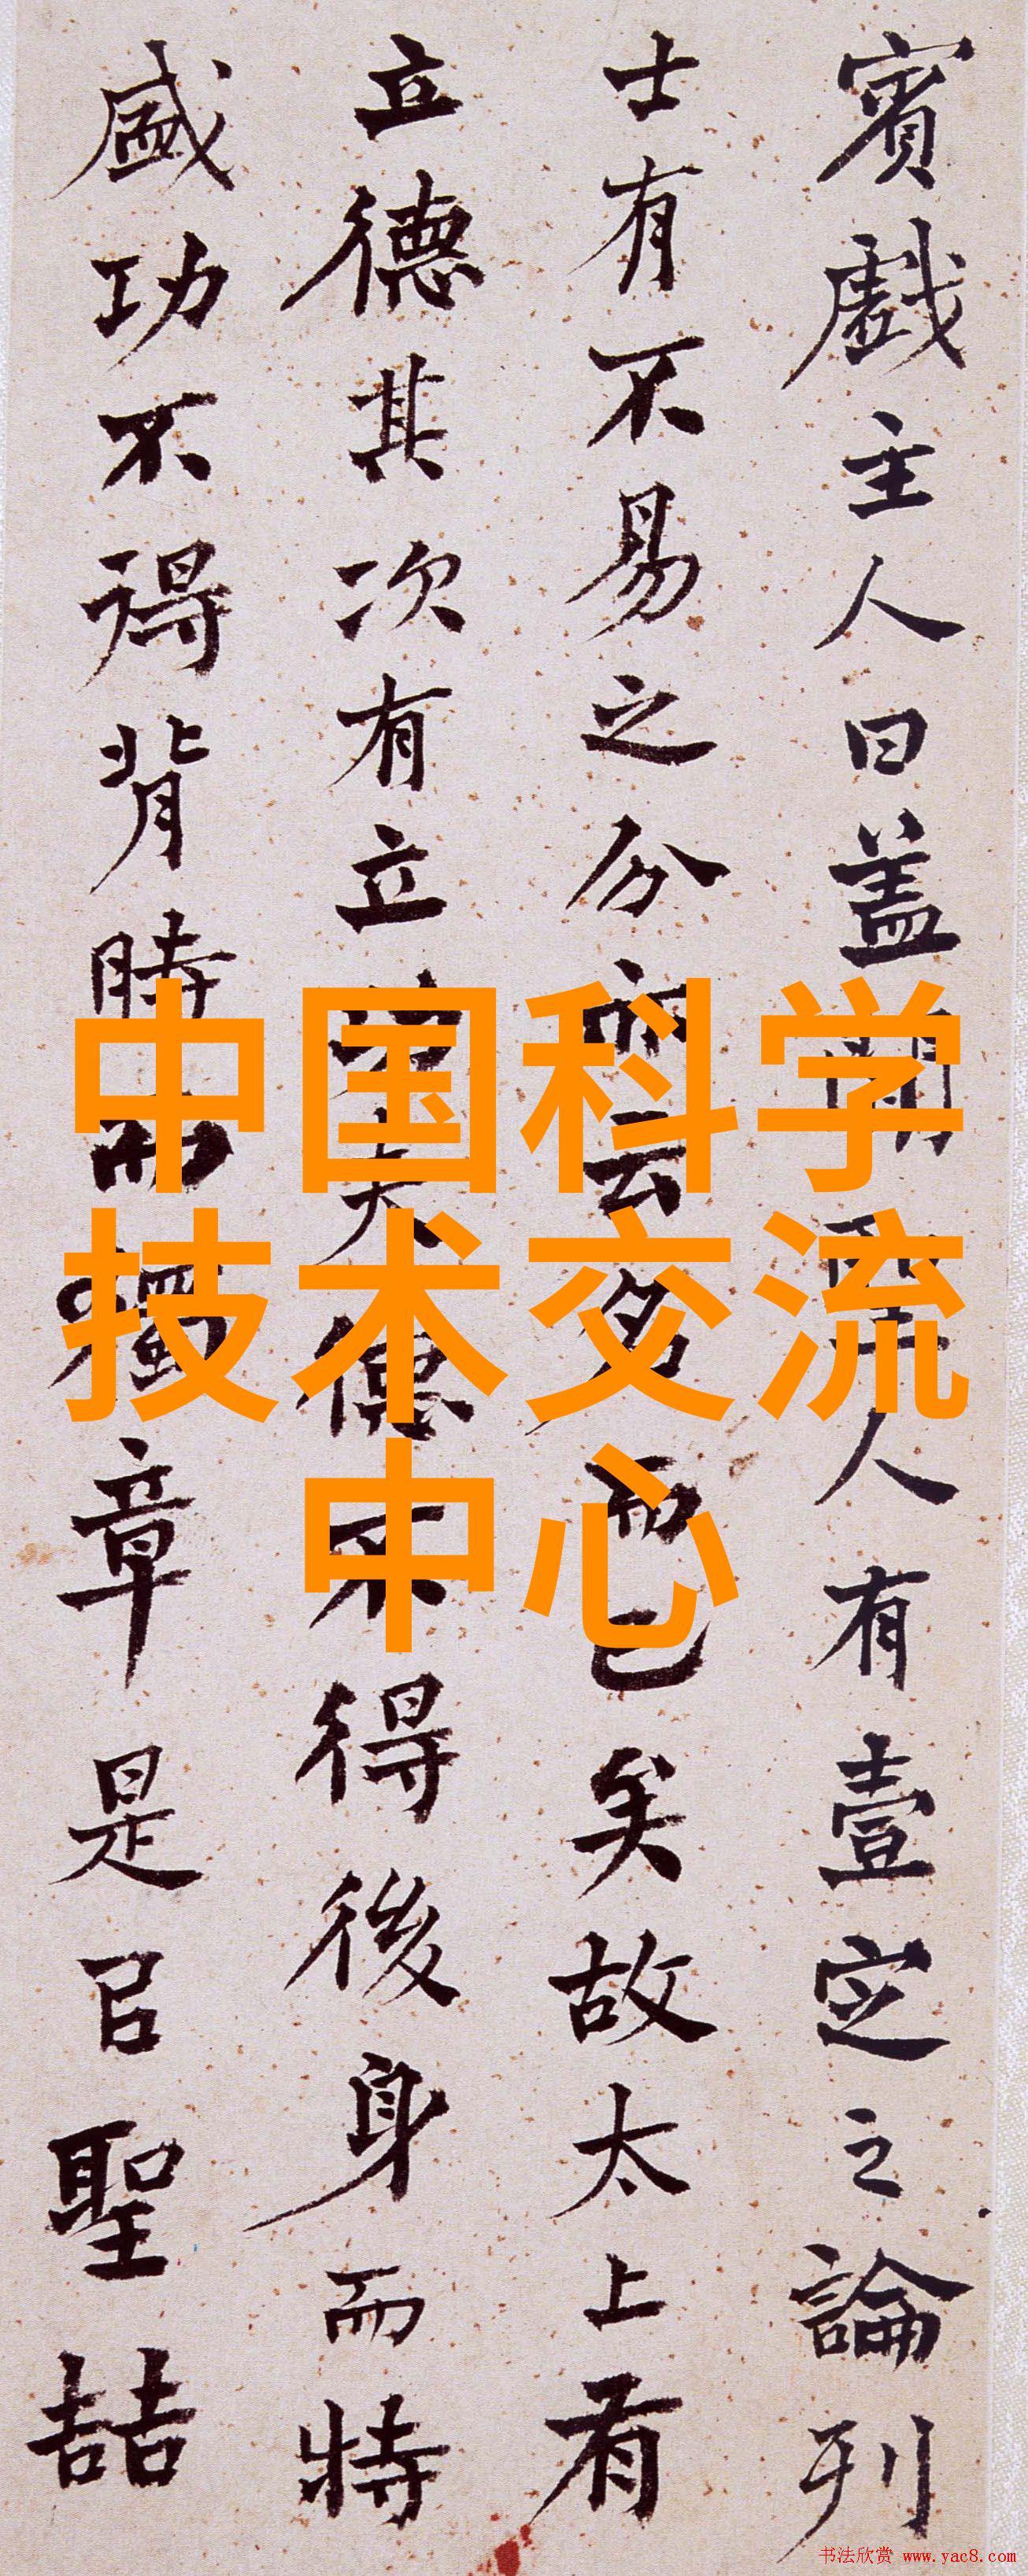 賓戲主人曰蓋聞聖人有壹定之論列
士有不易之分亦云名而已矣故太上有
立德其次有立功夫德不得後身而特
盛功不得背時而獨章是㠯聖喆
中国科学
技术交流
中心
书法欣赏 www.yac8.com